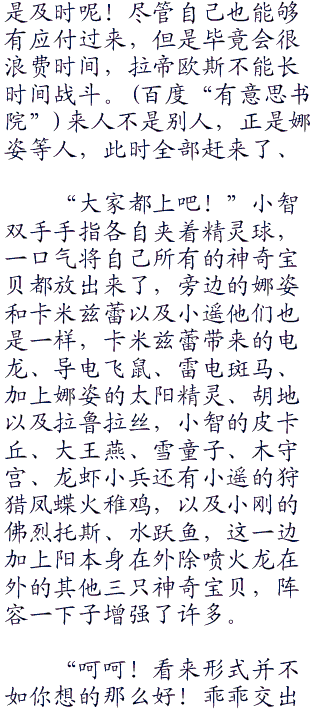 是及时呢！尽管自己也能够
有应付过来，但是毕竟会很
浪费时间，拉帝欧斯不能长
时间战斗。(百度“有意思书
院”)来人不是别人，正是娜
姿等人，此时全部赶来了、
“大家都上吧！”小智
双手手指各自夹着精灵球，
一口气将自己所有的神奇宝
贝都放出来了，旁边的娜姿
和卡米兹蕾以及小遥他们也
是一样，卡米兹蕾带来的电
龙、导电飞鼠、雷电斑马、
加上娜姿的太阳精灵、胡地
以及拉鲁拉丝，小智的皮卡
丘、大王燕、雪童子、木守
宫、龙虾小兵还有小遥的狩
猎凤蝶火稚鸡，以及小刚的
佛烈托斯、水跃鱼，这一边
加上阳本身在外除喷火龙在
外的其他三只神奇宝贝，阵
容一下子增强了许多。
“呵呵！看来形式并不
如你想的那么好！乖乖交出